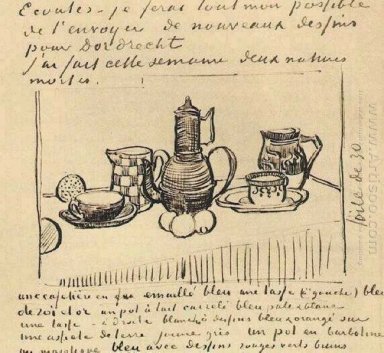 Ecoutes - je ferai tout mon possible
de t'envoyer de nouveaux dessins
pour Dordrecht
J'ai fait cette semaine deux natures
mortes.
toile de 30
une cafetière en emaillé bleu une tasse (à gauche) bleu
de roi et or un pot à lait carrelé bleu pâle & blanc
une tasse - à droite blanche à dessins bleu & orangé sur
une assiette de terre jaune gris un pot en barbotine
ou majolique bleu avec dessins rouges verts bruns